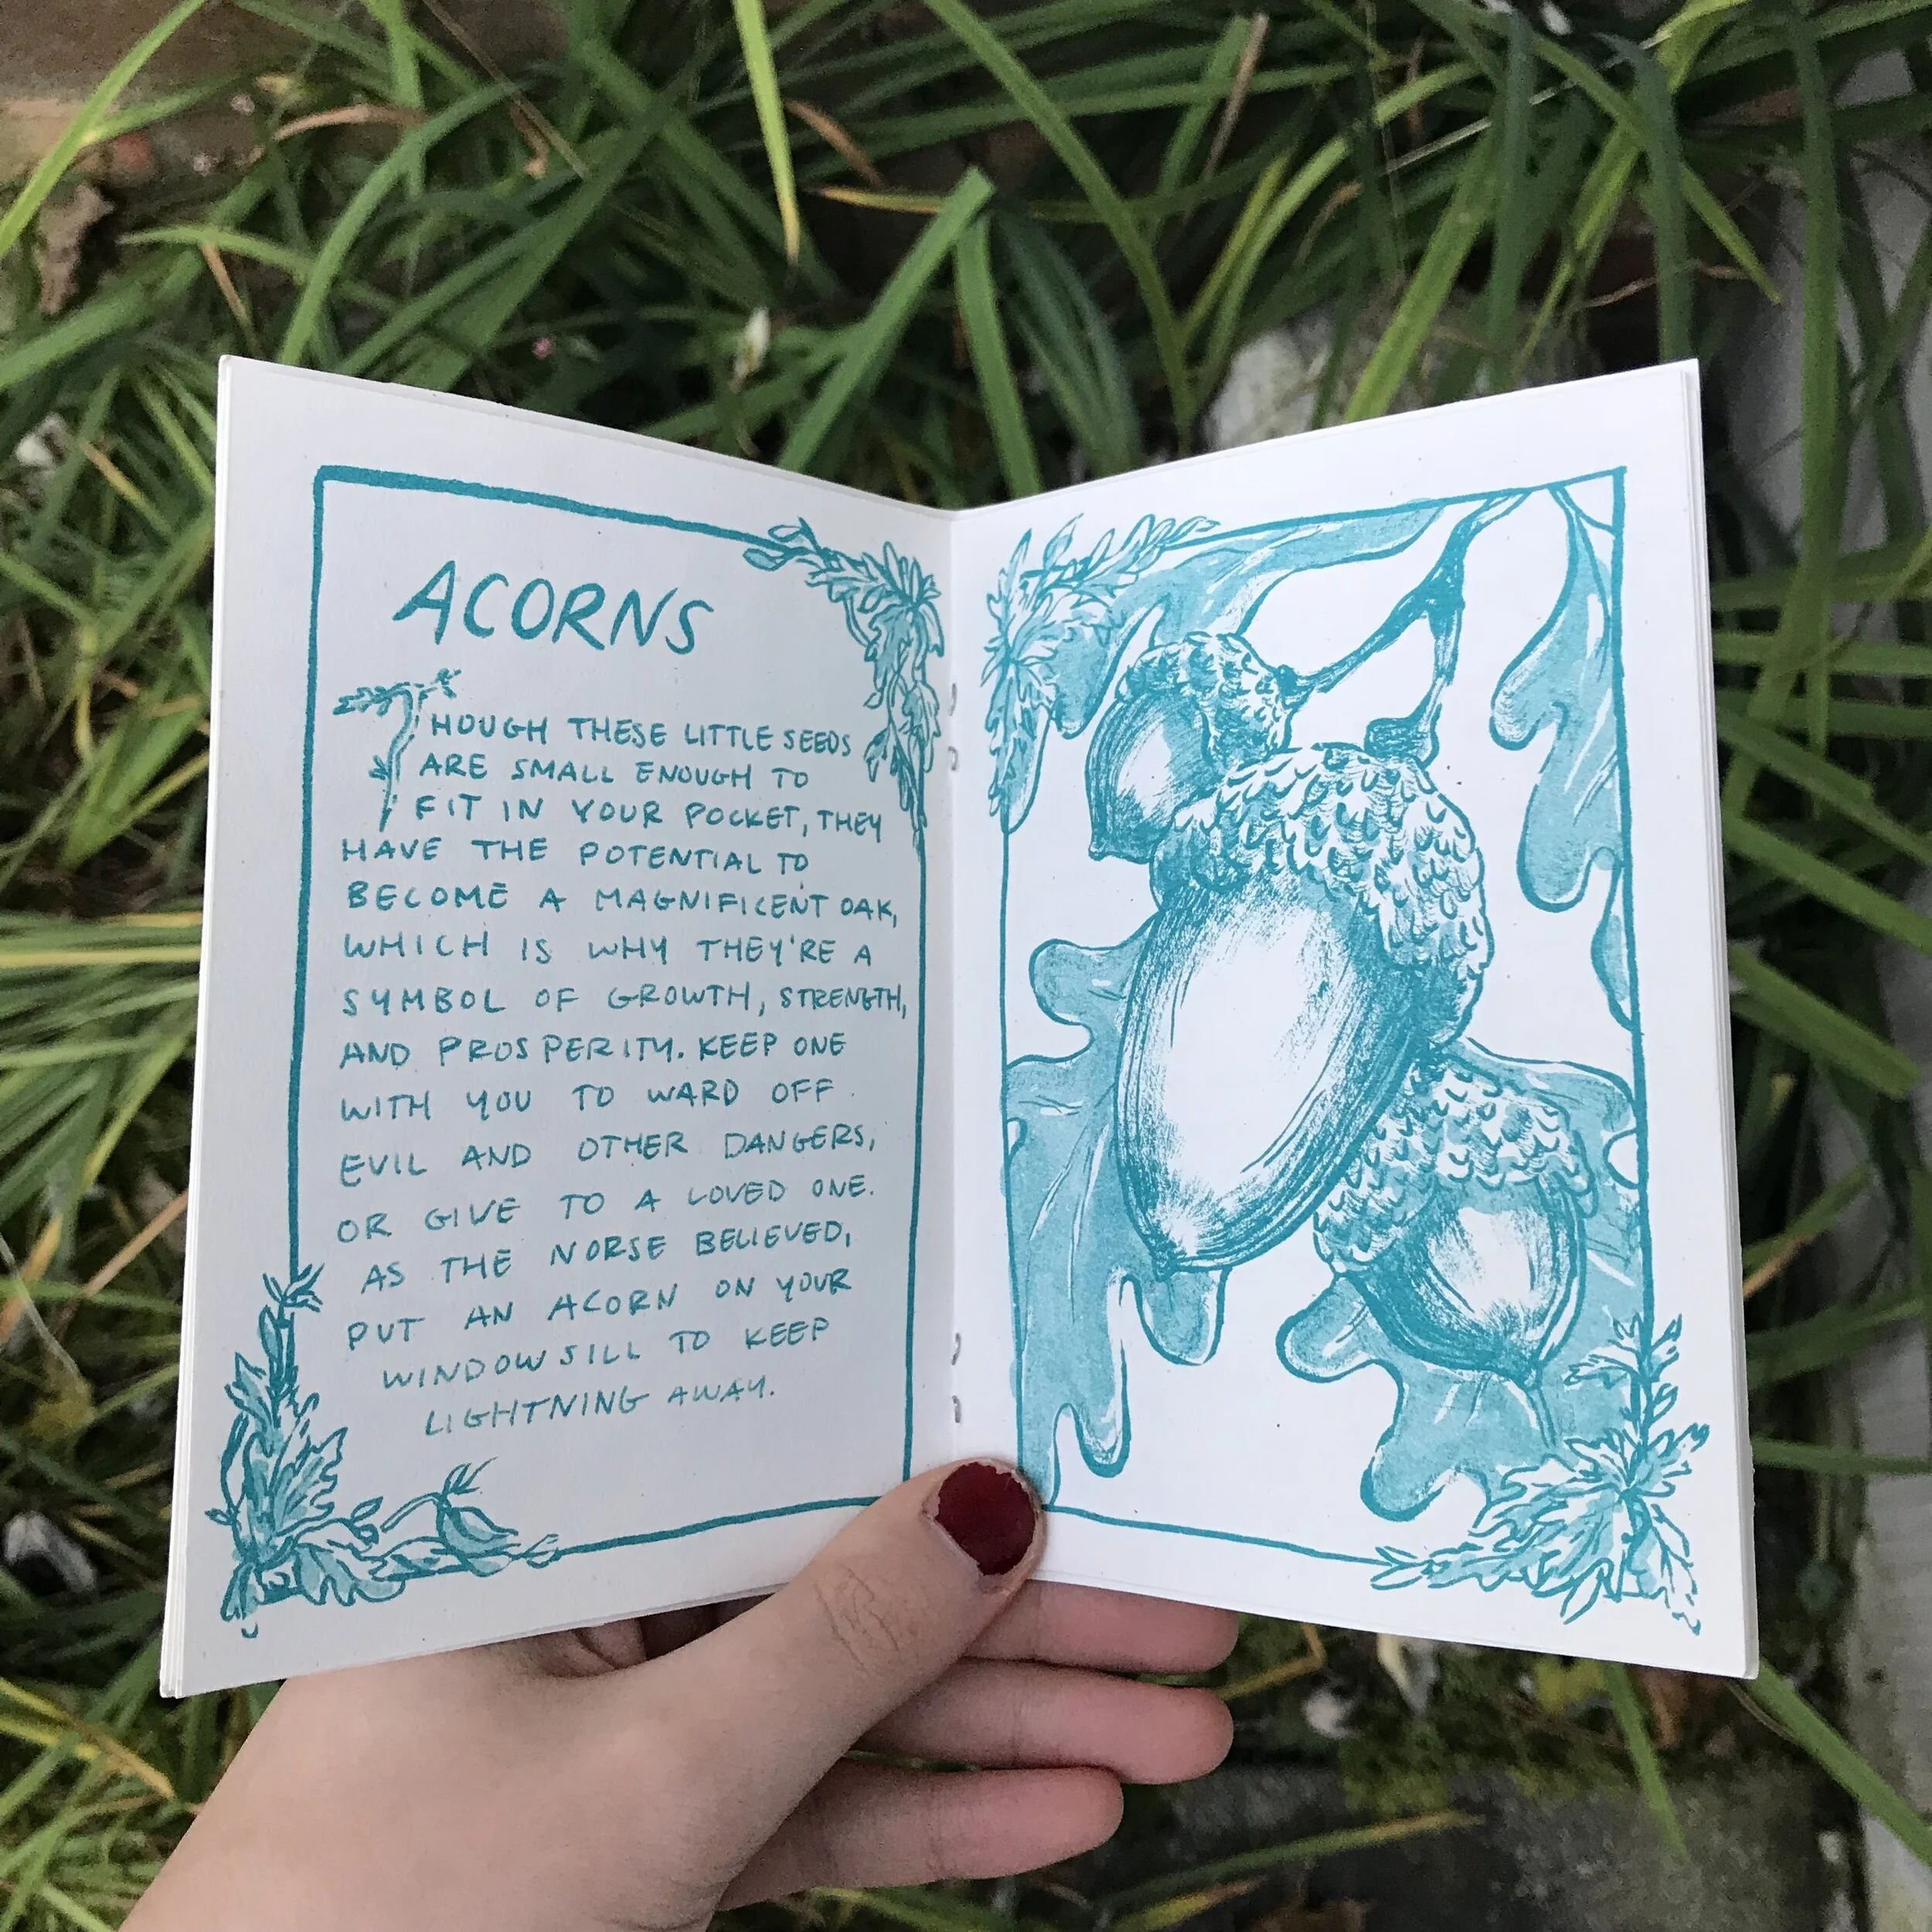 ACORNS
THOUGH THESE LITTLE SEEDS
ARE SMALL ENOUGH TO
FIT IN YOUR POCKET, THEY
HAVE THE POTENTIAL TO
BECOME A MAGNIFICENT OAK,
WHICH IS WHY THEY'RE A
SYMBOL OF GROWTH, STRENGTH,
AND PROSPERITY. KEEP ONE
WITH YOU TO WARD OFF
EVIL AND OTHER DANGERS,
OR GIVE TO A LOVED ONE.
AS THE NORSE BELIEVED,
PUT AN ACORN ON YOUR
WINDOWSILL TO KEEP
LIGHTNING AWAY.